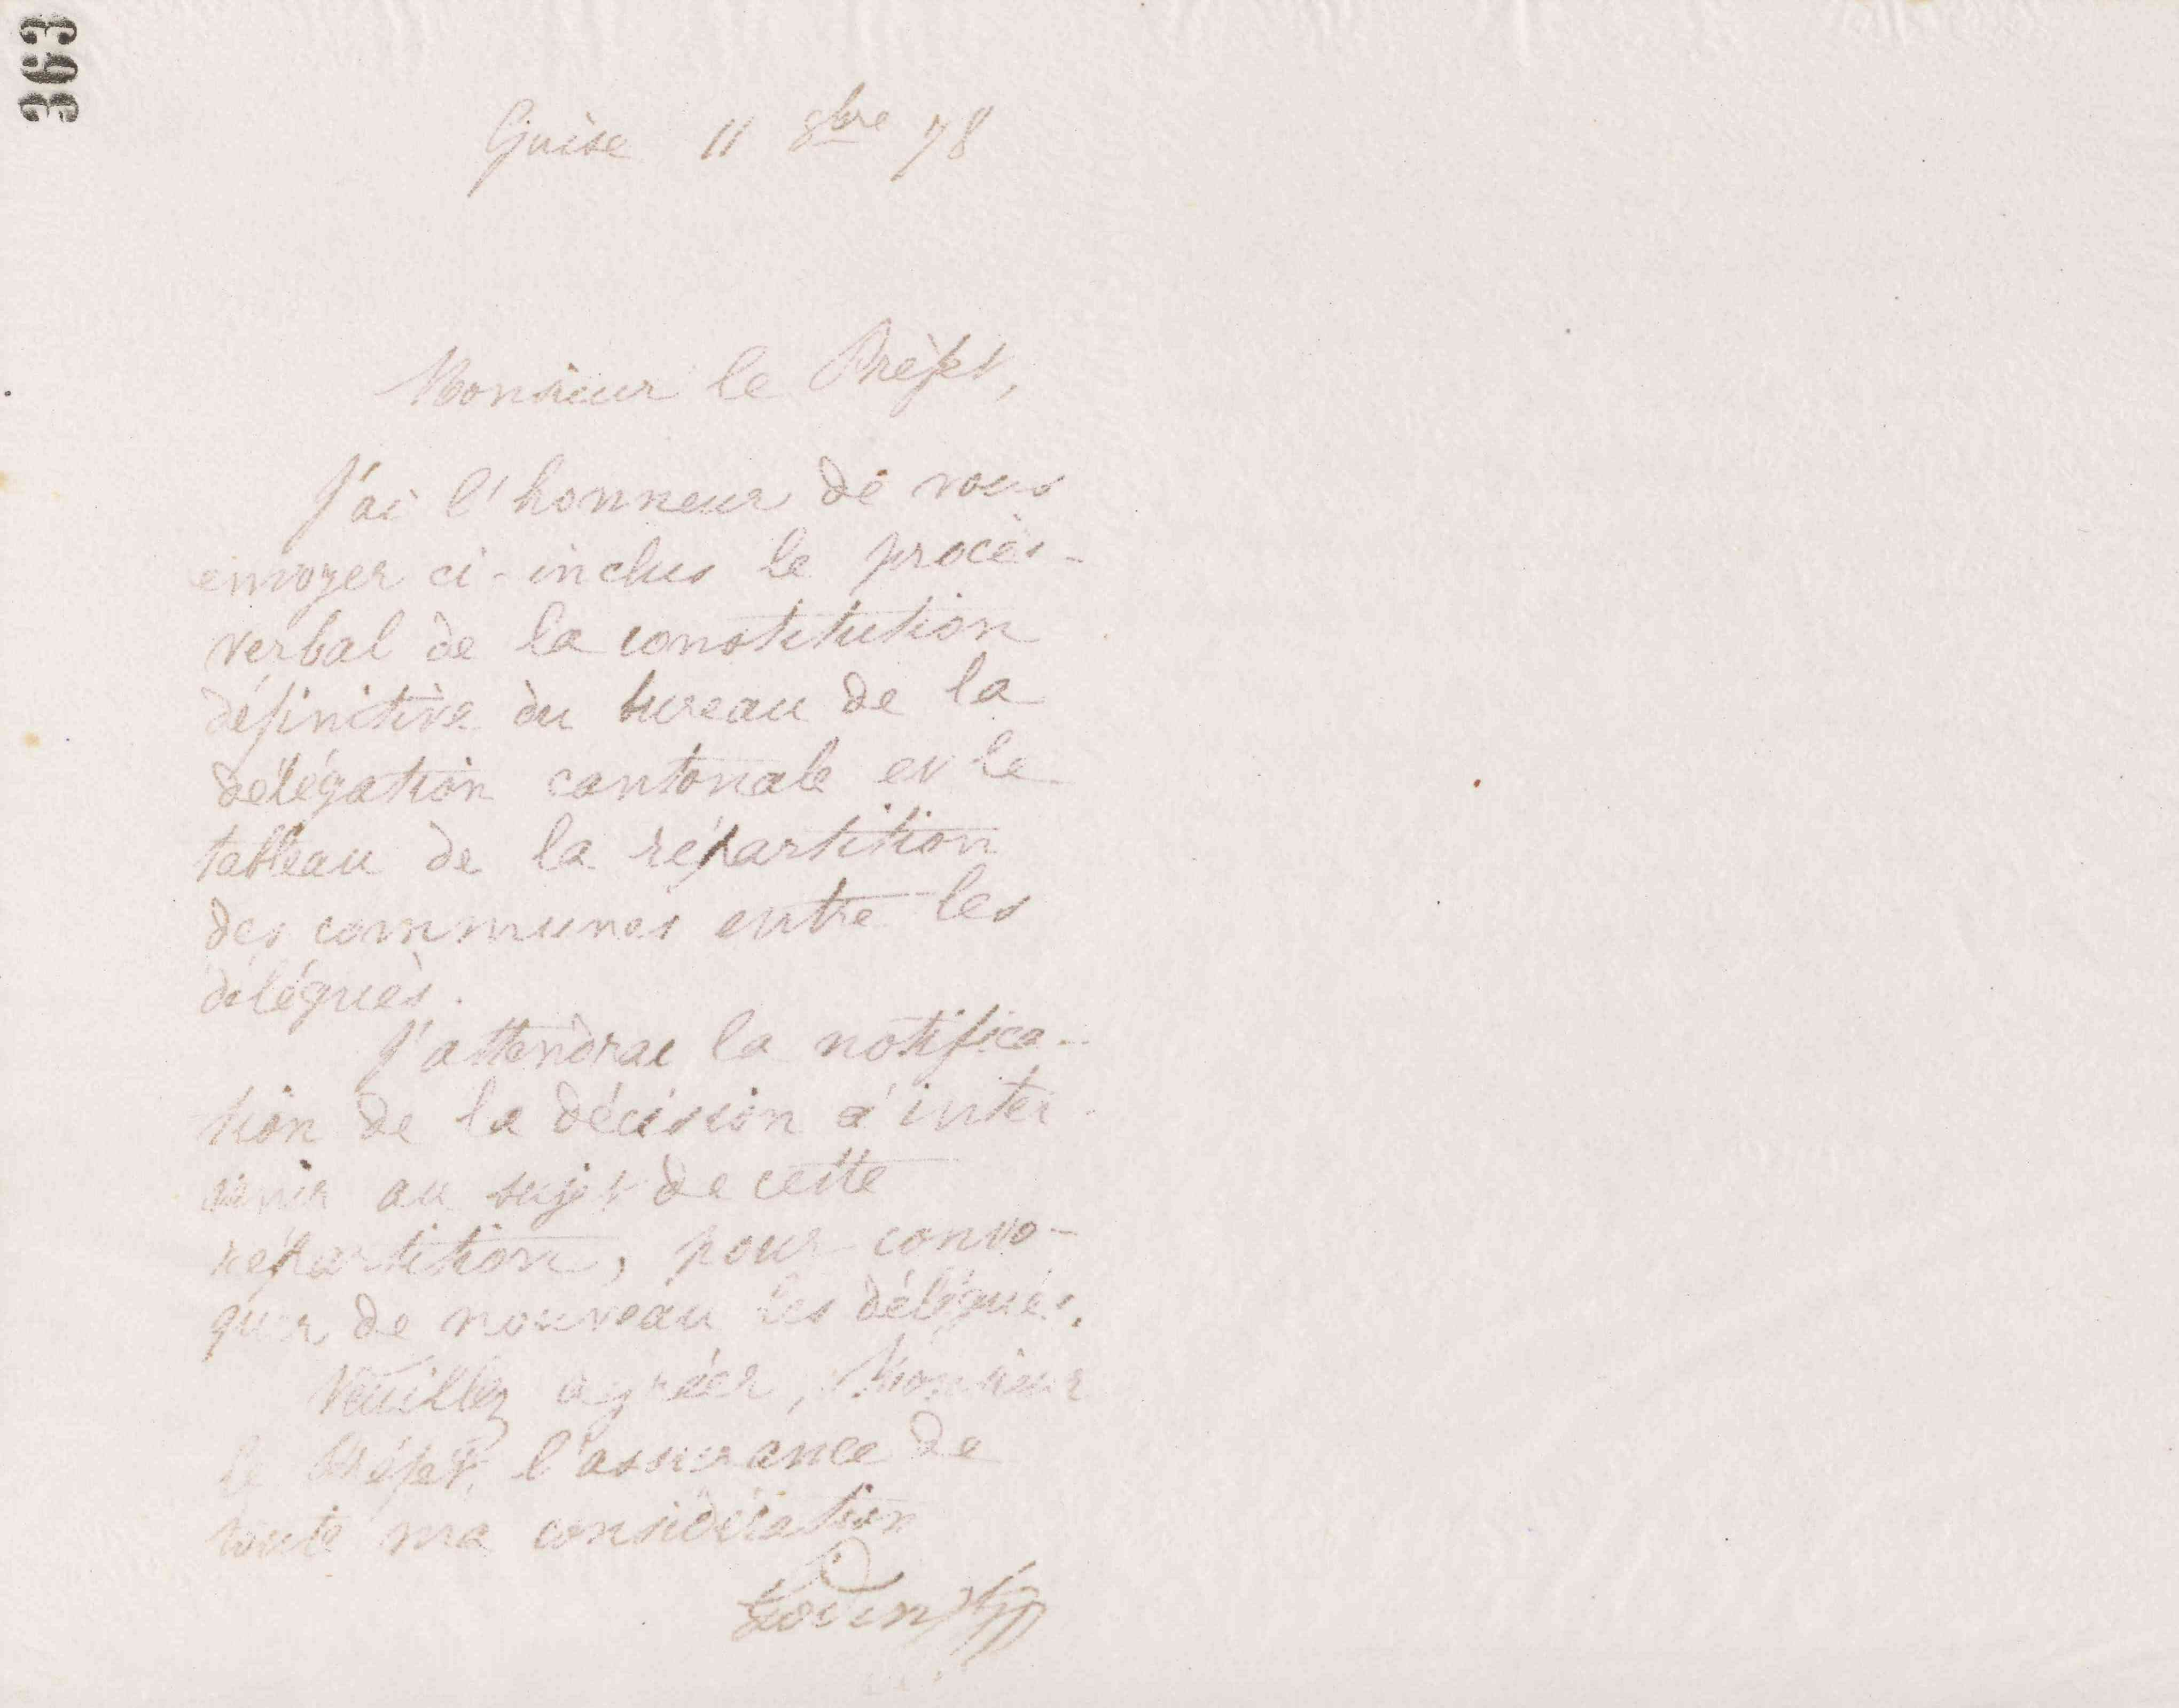 363
Guise 11 8bre 78
Monsieur le Préfet,
J'ai l'honneur de vous
envoyer ci-inclus le procès-
verbal de la constitution
définitive du bureau de la
délégation cantonale et le
tableau de la répartition
des communes entre les
délégués.
J'attendrai la notifica-
tion de la décision à inter-
venir au sujet de cette
répartition, pour convo-
quer de nouveau les délégués.
Veuillez agréer, Monsieur
le Préfet, l'assurance de
toute ma considération
Godin